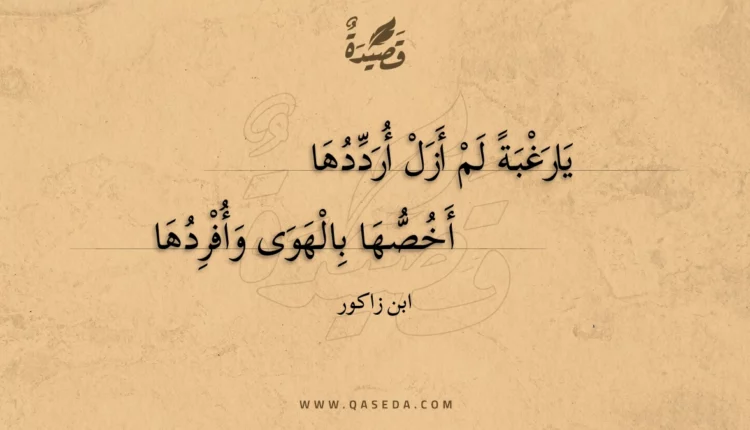 قَصِيدَةٌ
يَارَغْبَةً لَمْ أَزَلْ أُرَدِّدُهَا
أَخُصُّهَا بِالْهَوَى وَأُفْرِدُهَا
ابن زاكور
WWW.QASEDA.COM